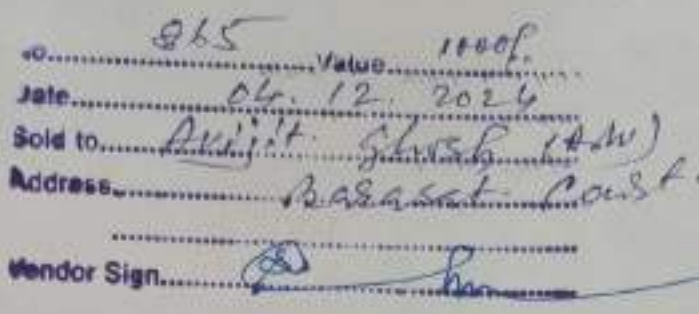 No. 865 Value 1000/-
Date 04.12.2024
Sold to Avijit Ghosh (Adv)
Address Barasat Court.
Vendor Sign